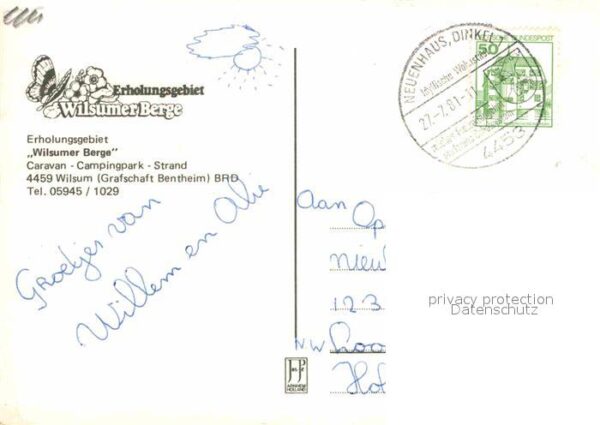 Erholungsgebiet
Wilsumer Berge
Erholungsgebiet
„Wilsumer Berge"
Caravan - Campingpark - Strand
4459 Wilsum (Grafschaft Bentheim) BRD
Tel. 05945 / 1029
Groetjes van
Willem en Alie
NEUENHAUS, DINKEL 1
27.-7.81-11
4453
50
BUNDESPOST
Aan Op
Nieu
123
NW Loo
Hol
privacy protection
Datenschutz
JosP
ARNHEM
HOLLAND